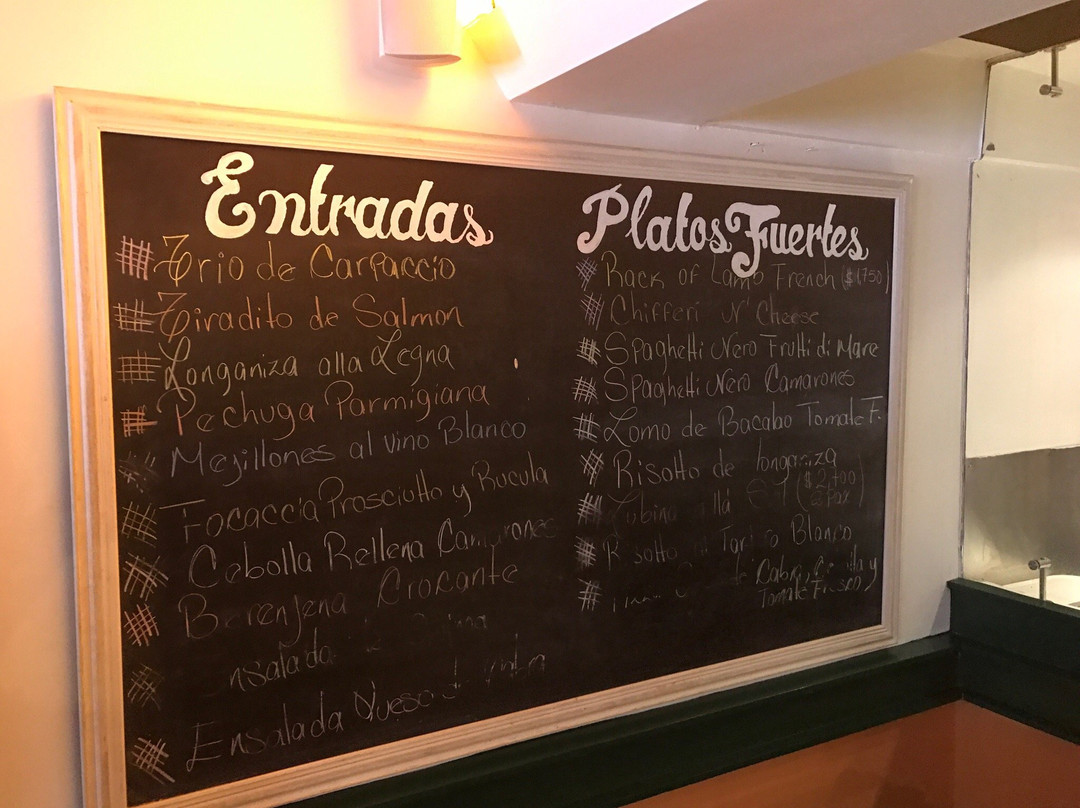 Entradas
Trio de Carpaccio
Tiradito de Salmon
Longaniza alla Legna
Pechuga Parmigiana
Mejillones al vino Blanco
Focaccia Prosciutto y Rucula
Cebolla Rellena Camarones
Berenjena Crocante
Ensalada
Ensalada Queso de
Platos Fuertes
Rack of Lamb French ($1,750)
Chifferi N' Cheese
Spaghetti Nero Frutti di Mare
Spaghetti Nero Camarones
Lomo de Bacalao Tomate F.
Risotto de longaniza
Lubina alla ($2,400
Risotto Blanco
y
Tomate Fresco